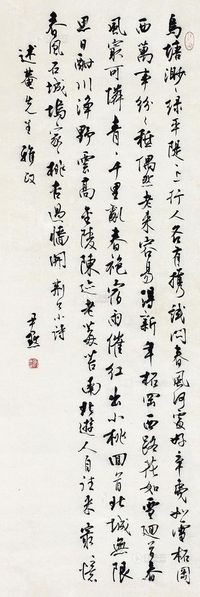 烏塘渺〻綠平隄〻上行人各有攜試問春風何處好辛夷如雪柘岡
西萬事紛〻秪偶然老來容易得新年柘岡西路花如雪迴首春
風冣可憐青〻千里亂春袍宿雨催紅出小桃回首北城無限
思日酣川淨野雲高金陵陳迹老莓苔南北遊人自往來冣憶
春風石城塢家〻桃杏過牆開 荆公小詩
述菴先生雅政
尹默